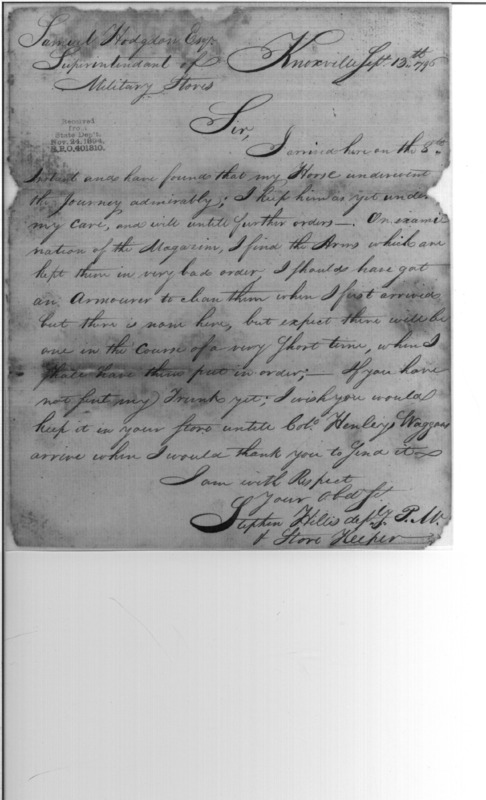 Samuel Hodgdon Esqr.
Superintendant of
Military Stores
Knoxville Sept. 13th 1796
Sir,
Received
from
State Dep't.
Nov. 24, 1894.
R.P.O. 401810.
I arrived here on the 8th
Instant and have found that my Horse underwent
the journey admirably; I keep him as yet under
my care, and will untill further orders—. On exami
nation of the Magazine, I find the Arms which are
kept there in very bad order, I should have got
an Armourer to clean them when I first arrived
but there is none here, but expect there will be
one in the Course of a very Short time, when I
shall have them put in order;— If you have
not sent my Trunk yet; I wish you would
keep it in your store untill Colo. Henleys Waggons
arrive when I would thank you to send it
I am with Respect
Your Obd St
Stephen Hillis depy. P. M.
& Store Keeper